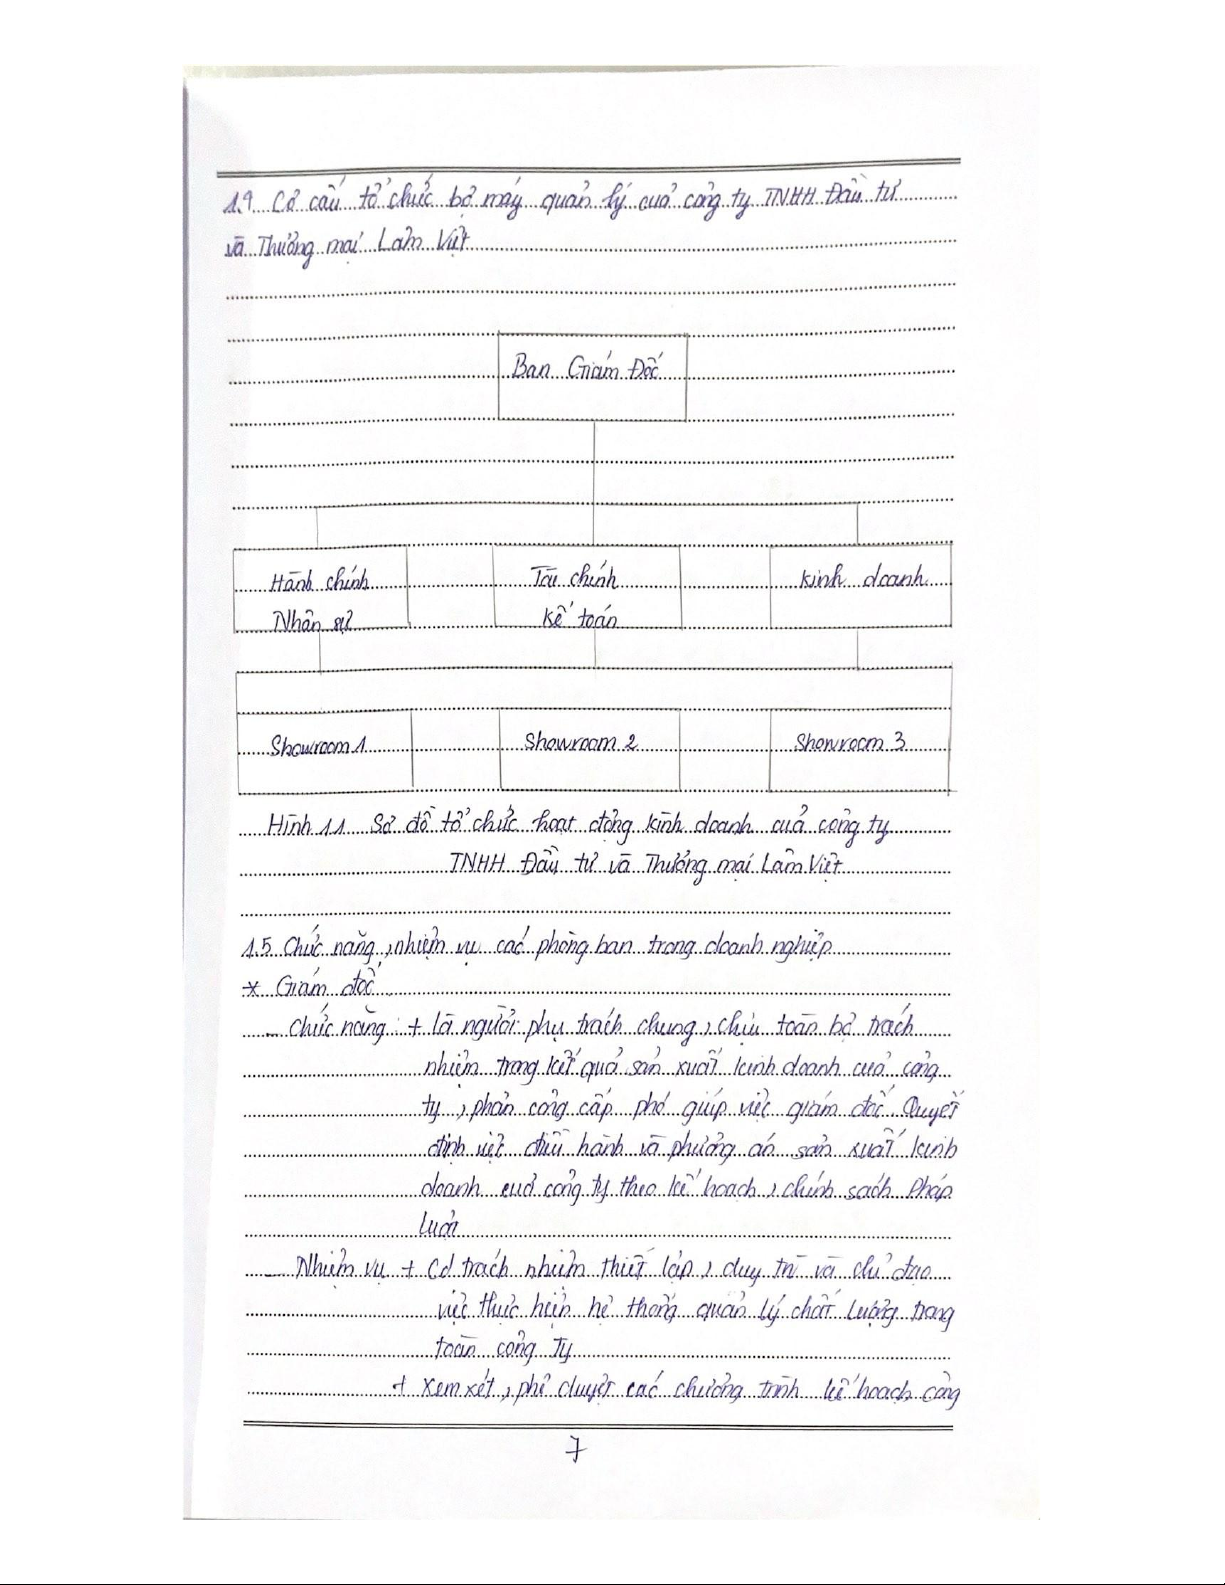 1.4 Cơ cấu tổ chức bộ máy quản lý của công ty TNHH Đầu tư
và Thương mại Lâm Việt
Ban Giám Đốc
Hành chính Tài chính Kinh doanh
Nhân sự Kế toán
Showroom 1 Showroom 2 Showroom 3
Hình 1.1 Sơ đồ tổ chức hoạt động kinh doanh của công ty
TNHH Đầu tư và Thương mại Lâm Việt
1.5 Chức năng, nhiệm vụ các phòng ban trong doanh nghiệp
* Giám đốc
- Chức năng : + là người phụ trách chung, chịu toàn bộ trách
nhiệm trong kết quả sản xuất kinh doanh của công
ty, phân công cấp phó giúp việc giám đốc. Quyết
định việc điều hành và phương án sản xuất kinh
doanh của công ty theo kế hoạch, chính sách Pháp
luật
- Nhiệm vụ + Có trách nhiệm thiết lập, duy trì và chỉ đạo
việc thực hiện hệ thống quản lý chất lượng trong
toàn công ty
+ Xem xét, phê duyệt các chương trình kế hoạch công
7